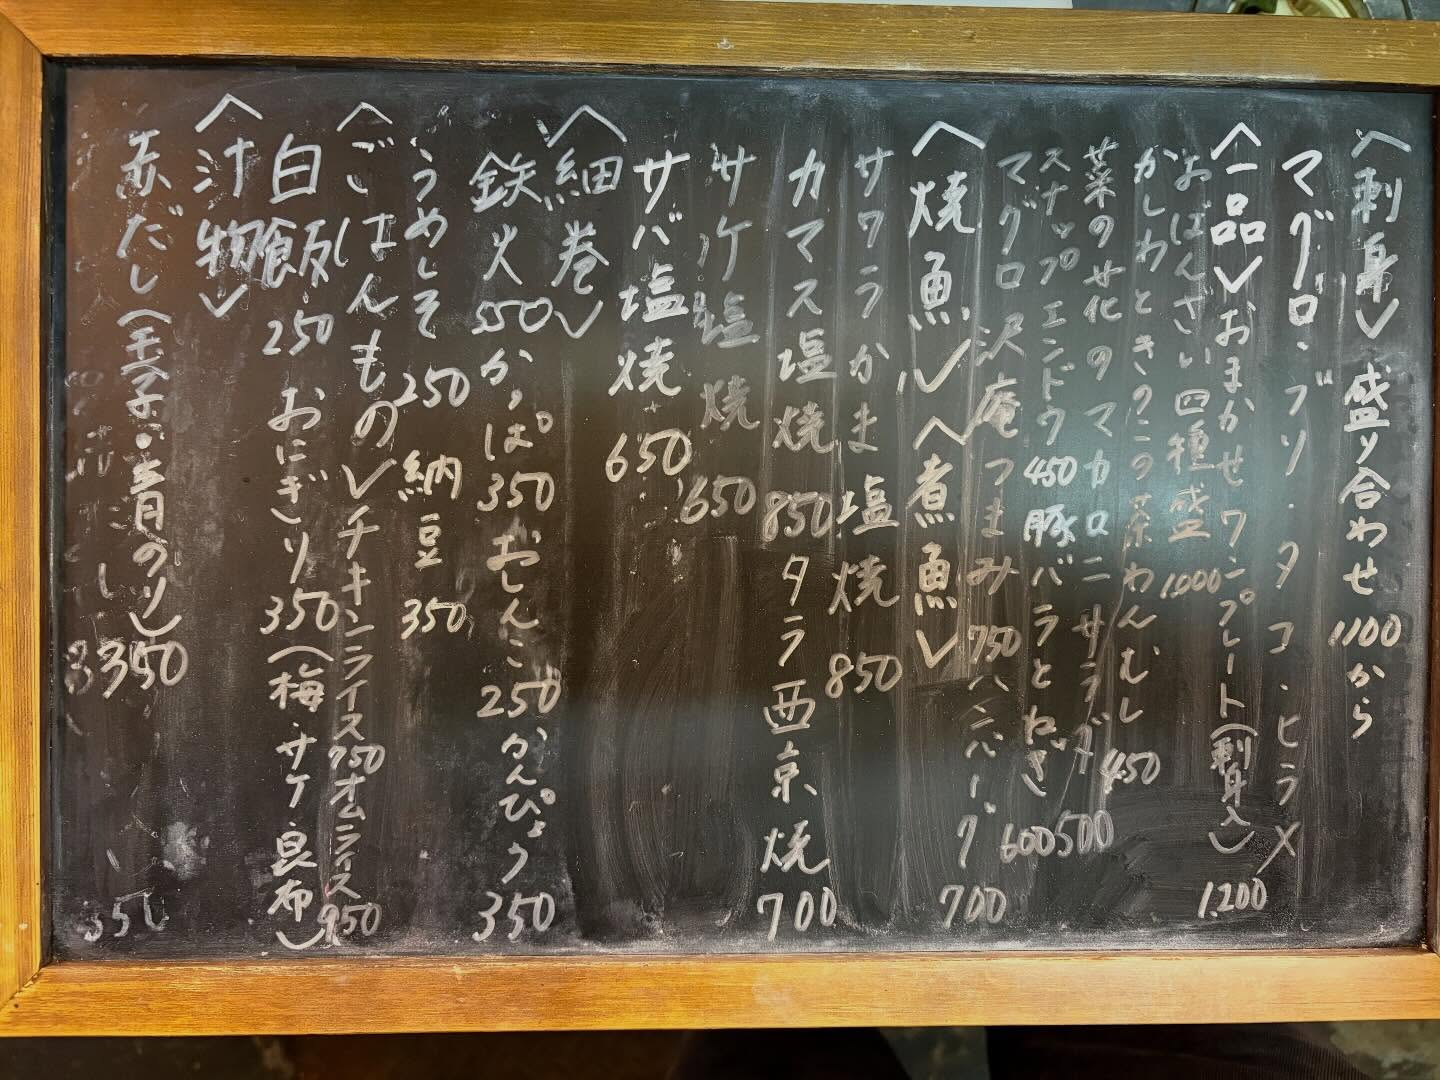 〈刺身〉盛り合わせ 1100から
マグロ・ブリ・タコ・ヒラメ
〈一品〉おまかせワンプレート(刺身入) 1,200
おばんざい四種盛 1,000
かしわときのこの茶わんむし 450
菜の花のマカロニサラダ 500
スナップエンドウ 450 豚バラとねぎ 600
マグロ沢庵つまみ 750 ハンバーグ 700
〈焼魚〉〈煮魚〉
サワラかま塩焼 850
カマス塩焼 850 タラ西京焼 700
サケ塩焼 650
サバ塩焼 650
〈細巻〉
鉄火 550 かっぱ 350 おしんこ 250 かんぴょう 350
うめしそ 250 納豆 350
〈ごはんもの〉チキンライス 750 オムライス 950
白飯 250 おにぎり 350 (梅・サケ・昆布)
〈汁物〉
赤だし(玉子・青のり) 350
350